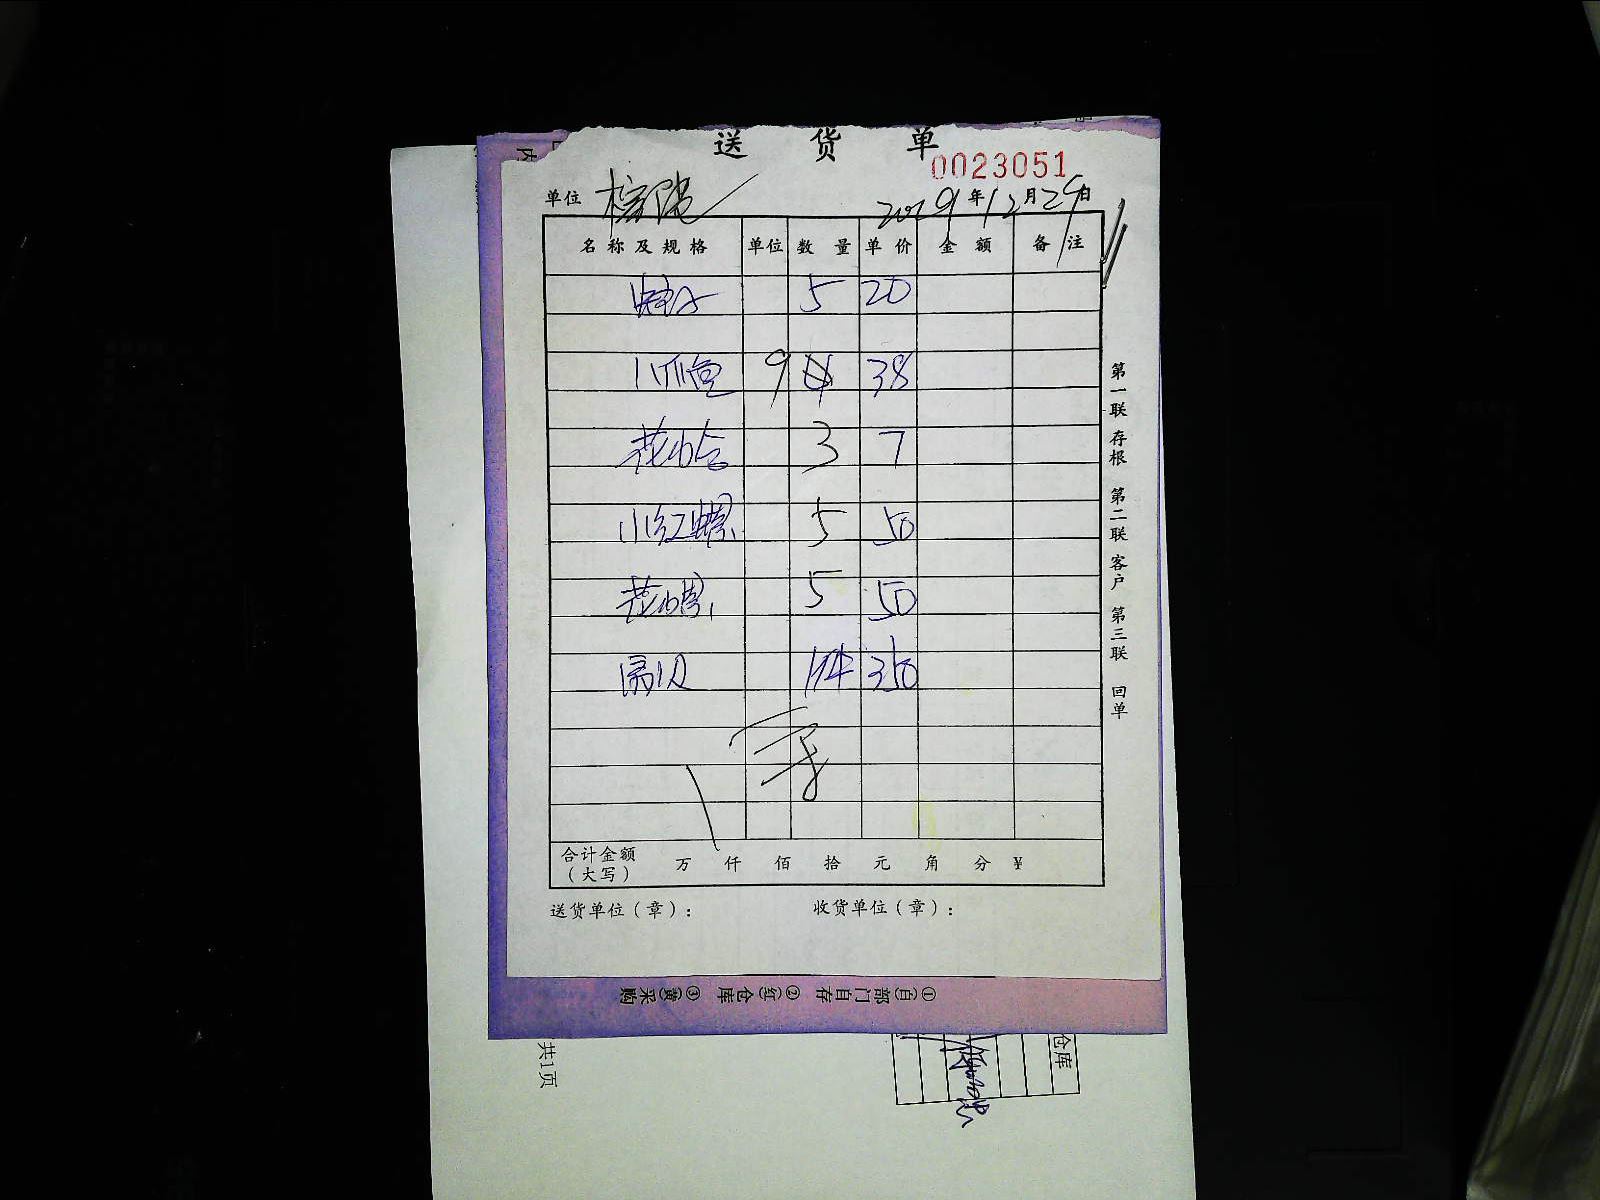 送货单
0023051
单位 2019年12月29日
名称及规格 单位 数量 单价 金额 备注
5 20
9 38
花蛤 3 7
小红螺 5 50
花螺 5 50
1件 350
合计金额（大写） 万 仟 佰 拾 元 角 分 ¥
送货单位（章）： 收货单位（章）：
第一联 存根 第二联 客户 第三联 回单
①(白)部门自存 ②(红)仓库 ③(黄)采购
共1页
仓库